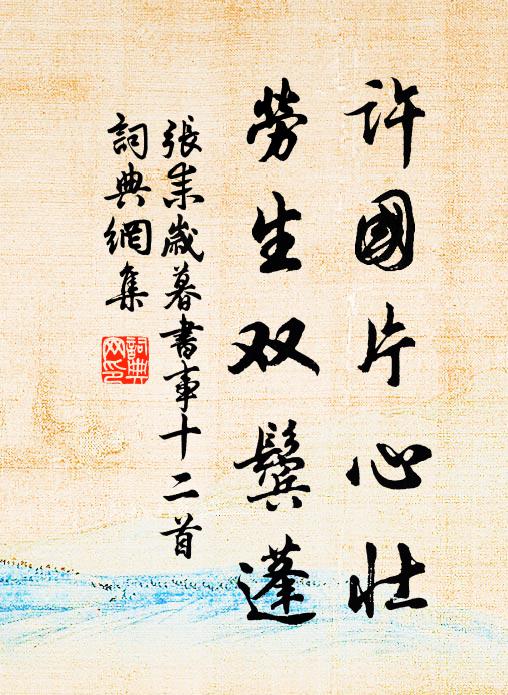 許國片心壯
勞生双鬢蓬
張耒歲暮書事十二首
詞典網集
詞典网印